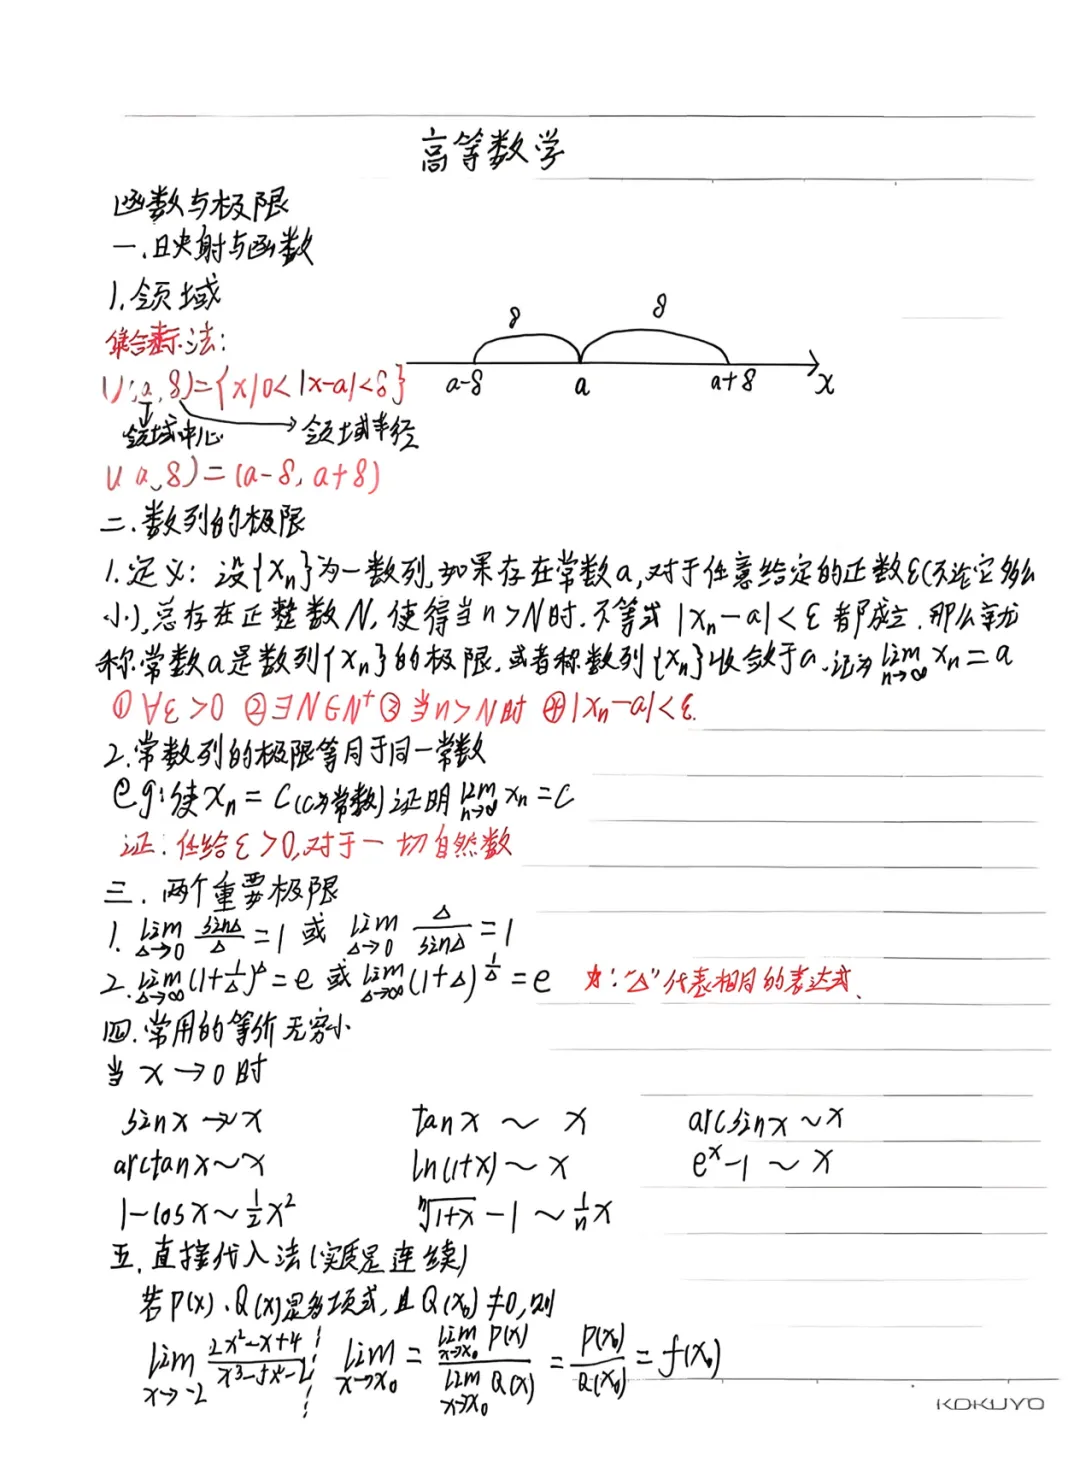 高等数学
函数与极限
一.映射与函数
1.领域
集合表示法:
U(a,δ)={x|0<|x-a|<δ}
δ δ
a-δ a a+δ x
领域中心 → 领域半径
U(a,δ)=(a-δ,a+δ)
二.数列的极限
1.定义:设{xₙ}为一数列,如果存在常数a,对于任意给定的正数ε(不论它多么
小),总存在正整数N,使得当n>N时.不等式|xₙ-a|<ε都成立.那么就
称常数a是数列{xₙ}的极限,或者称数列{xₙ}收敛于a.记为lim n→∞ xₙ=a
①∀ε>0 ②∃N∈N⁺ ③当n>N时 ④|xₙ-a|<ε.
2.常数列的极限等用于同一常数
eg:使xₙ=C(C为常数)证明 lim n→∞ xₙ=C
证:任给ε>0,对于一切自然数
三.两个重要极限
1. lim Δ→0 sinΔ/Δ=1 或 lim Δ→0 Δ/sinΔ=1
2. lim Δ→∞ (1+1/Δ)^Δ=e 或 lim Δ→∞ (1+Δ)^(1/Δ)=e :"Δ"代表相同的表达式.
四.常用的等价无穷小
当x→0时
sinx~x tanx~x arcsinx~x
arctanx~x ln(1+x)~x eˣ-1~x
1-cosx~½x² ⁿ√1+x-1~1/n x
五.直接代入法(实质是连续)
若P(x).Q(x)是多项式,且Q(x₀)≠0,则
lim x→-2 2x²-x+4/x³-5x²-2 lim x→x₀ = lim x→x₀ P(x)/lim x→x₀ Q(x) = P(x₀)/Q(x₀) = f(x₀)
KOKUYO